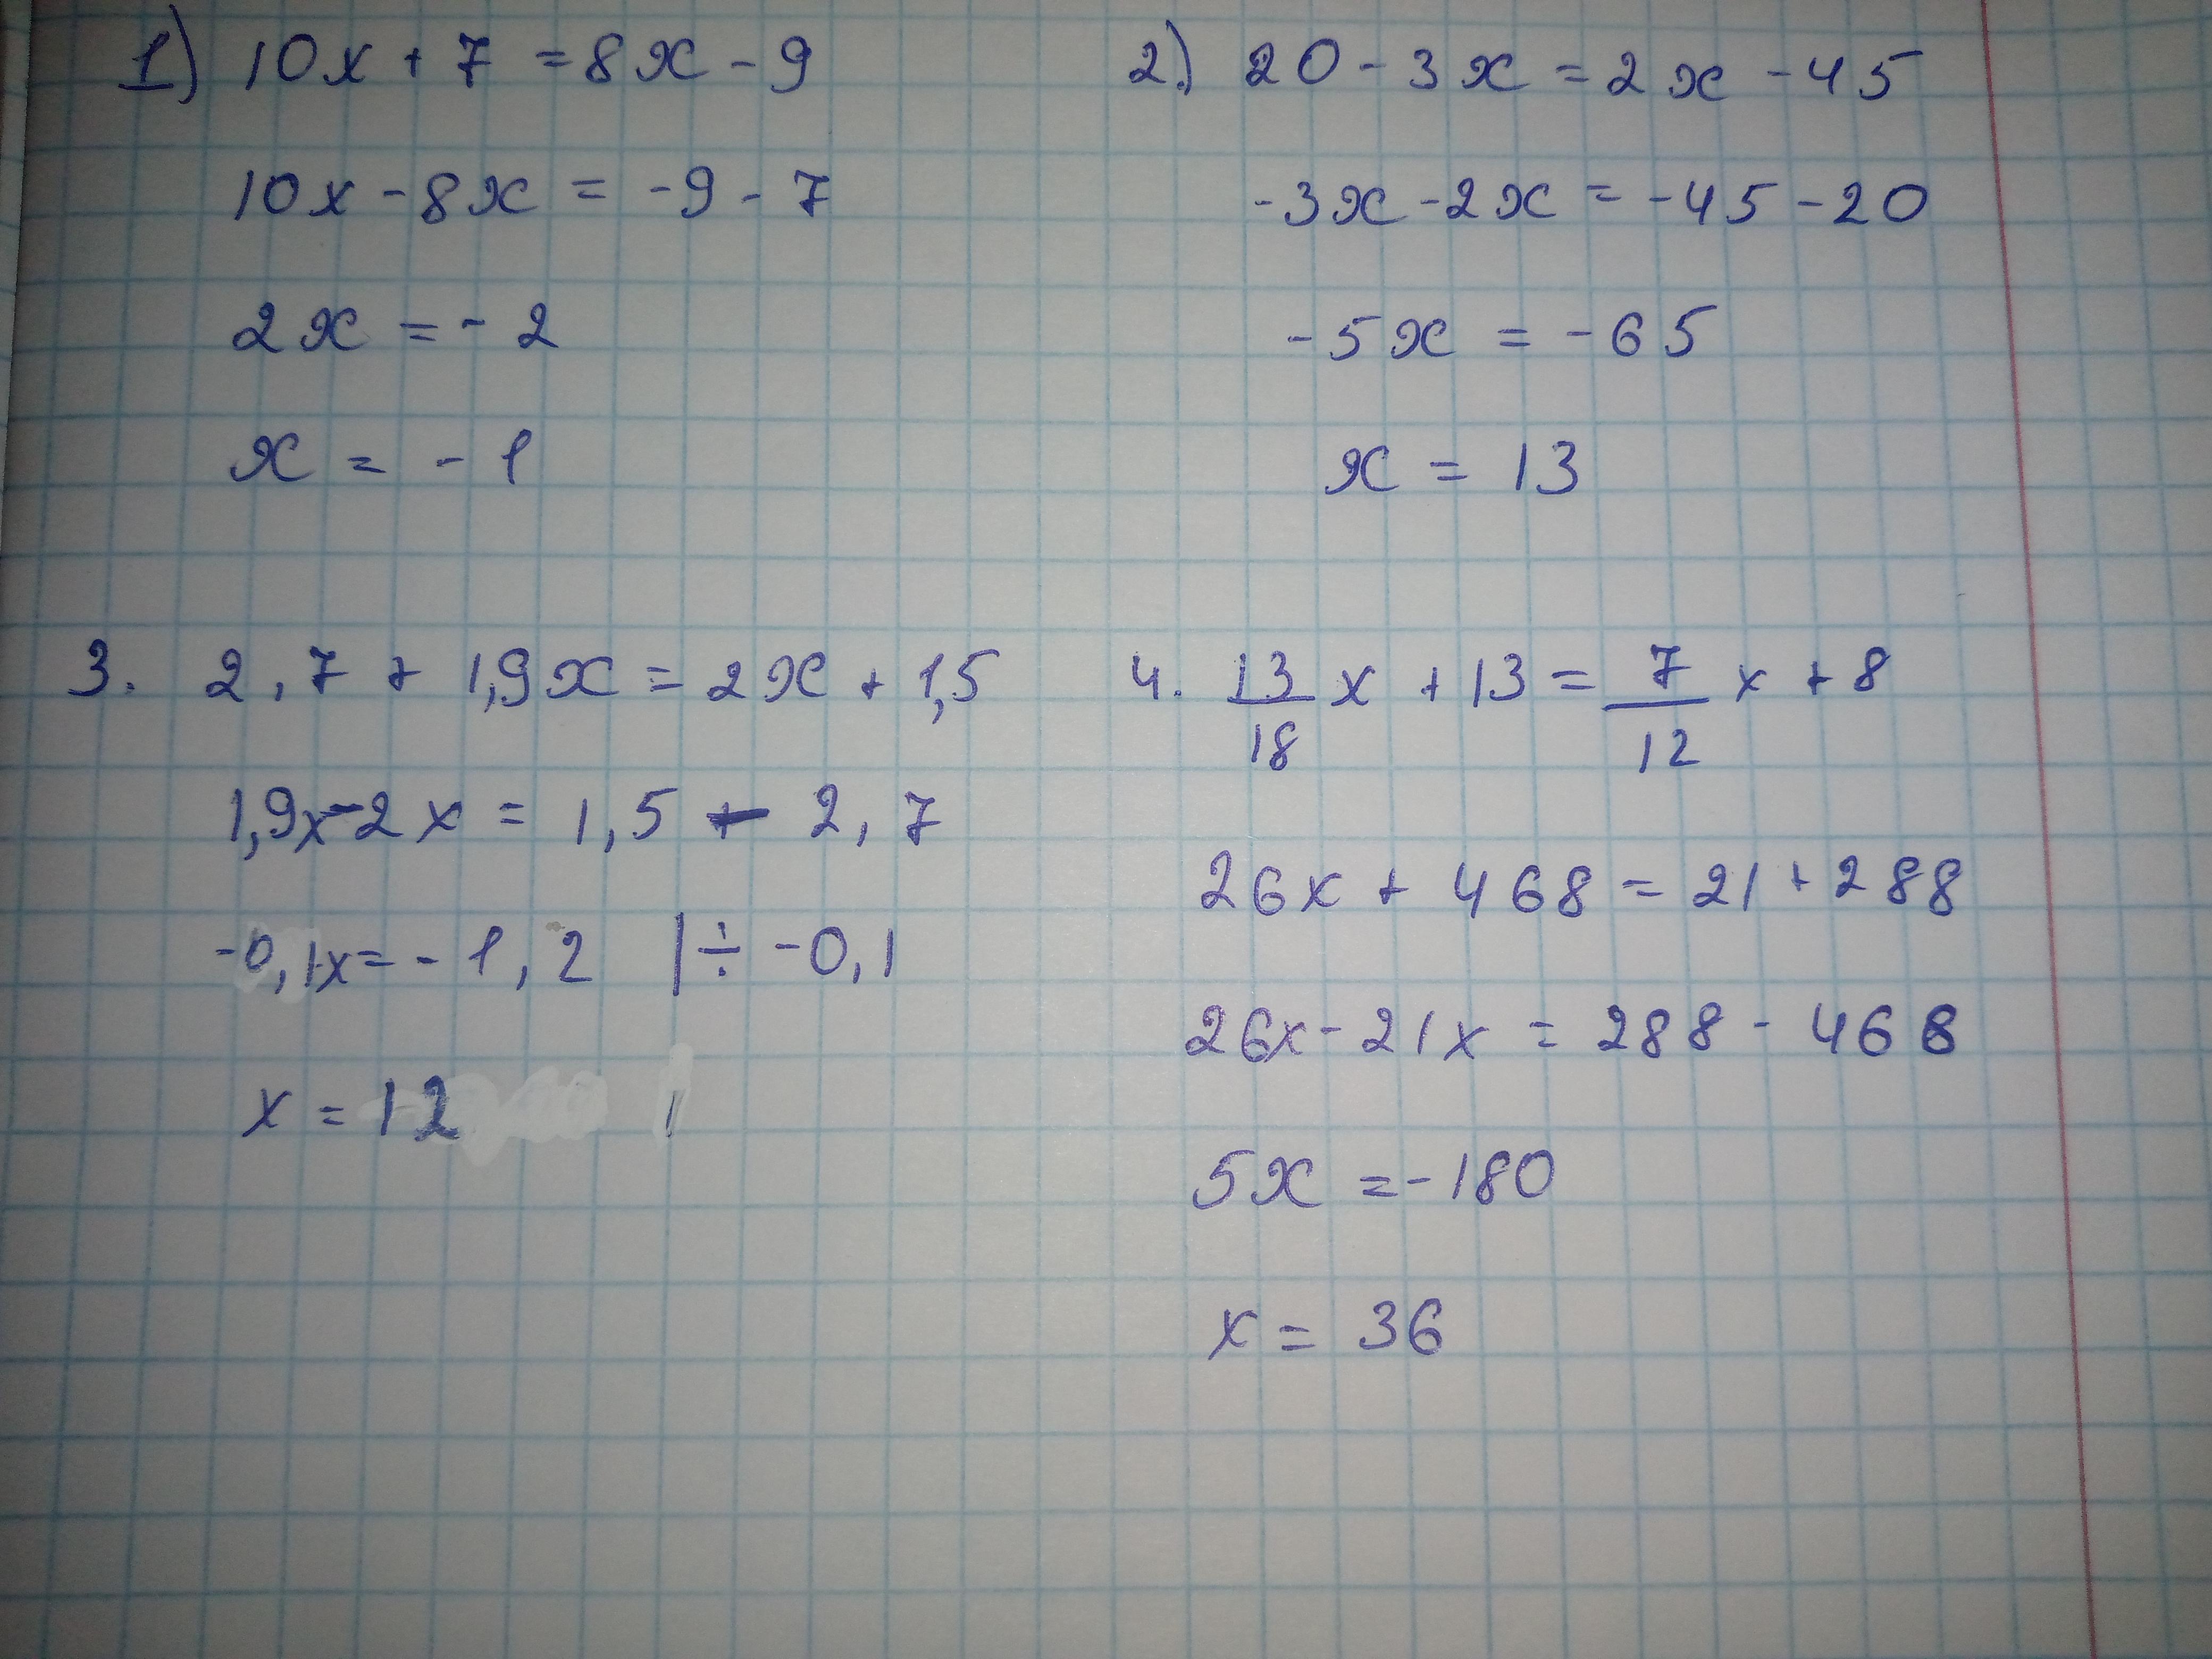 1) 10x + 7 = 8x - 9
10x - 8x = -9 - 7
2x = - 2
x = - 1
2.) 20 - 3x = 2x - 45
-3x - 2x = -45 - 20
-5x = -65
x = 13
3. 2,7 + 1,9x = 2x + 1,5
1,9x - 2x = 1,5 - 2,7
-0,1x = - 1,2 | ÷ -0,1
x = 12
4. 13/18 x + 13 = 7/12 x + 8
26x + 468 = 21 + 288
26x - 21x = 288 - 468
5x = -180
x = 36